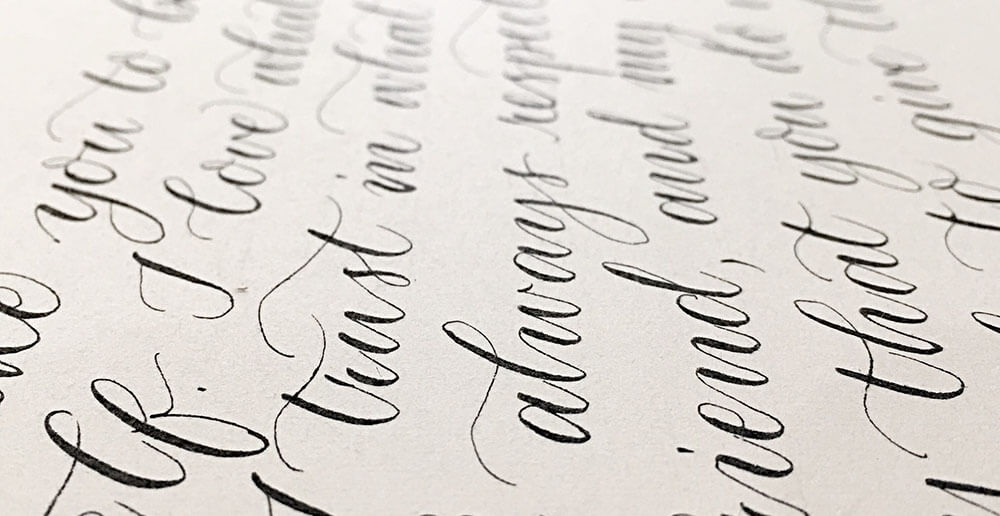 you to
I love what
I trust in what
always respect
iend, and my
that you do
to give